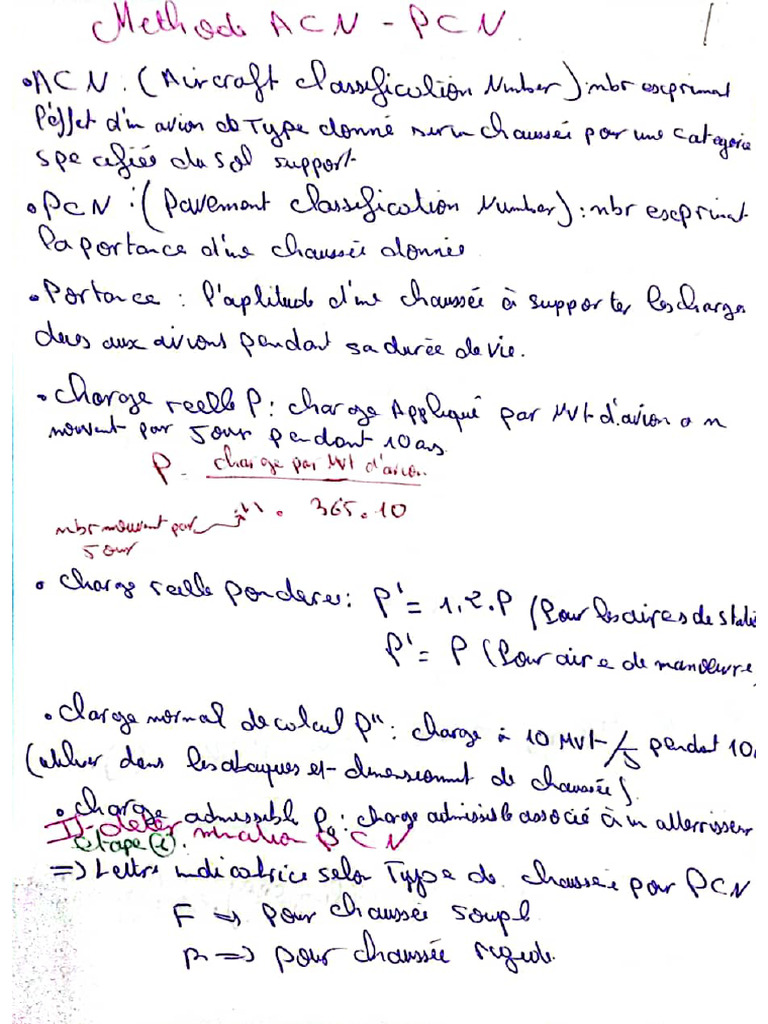 Methode ACN - PCN.
1
• ACN : (Aircraft Classification Number) : nbr exprimant
l'effet d'un avion de Type donné sur un chaussée pour une categorie
specifiée du sol support.
• PCN : (Pavement Classification Number) : nbr exprimat
la portance d'une chaussée donnée
• Portance : l'aptitude d'une chaussée à supporter les charges
dues aux avions pendant sa durée de vie.
• charge reelle P : charge Appliqué par Mvt d'avion a n
mouvent par Jour pendant 10 ans.
P = charge par Mvt d'avion
n . 365.10
nbr mouvent par
Jour
• charge reelle ponderée : P' = 1,2.P (Pour les aires de stati
P' = P (Pour aire de manœuvre
• charge normal de calcul P'' : charge à 10 Mvt/J pendat 10
(utiliser dans les abaques et dimensionnmt de chaussée).
• charge admissible Pq : charge admissible associé à un atterrisseur
II - determination PCN
étape (1) :
=> Lettre indicatrice selon Type de chaussée par PCN
F => pour chaussée soupl
R => pour chaussée regide.